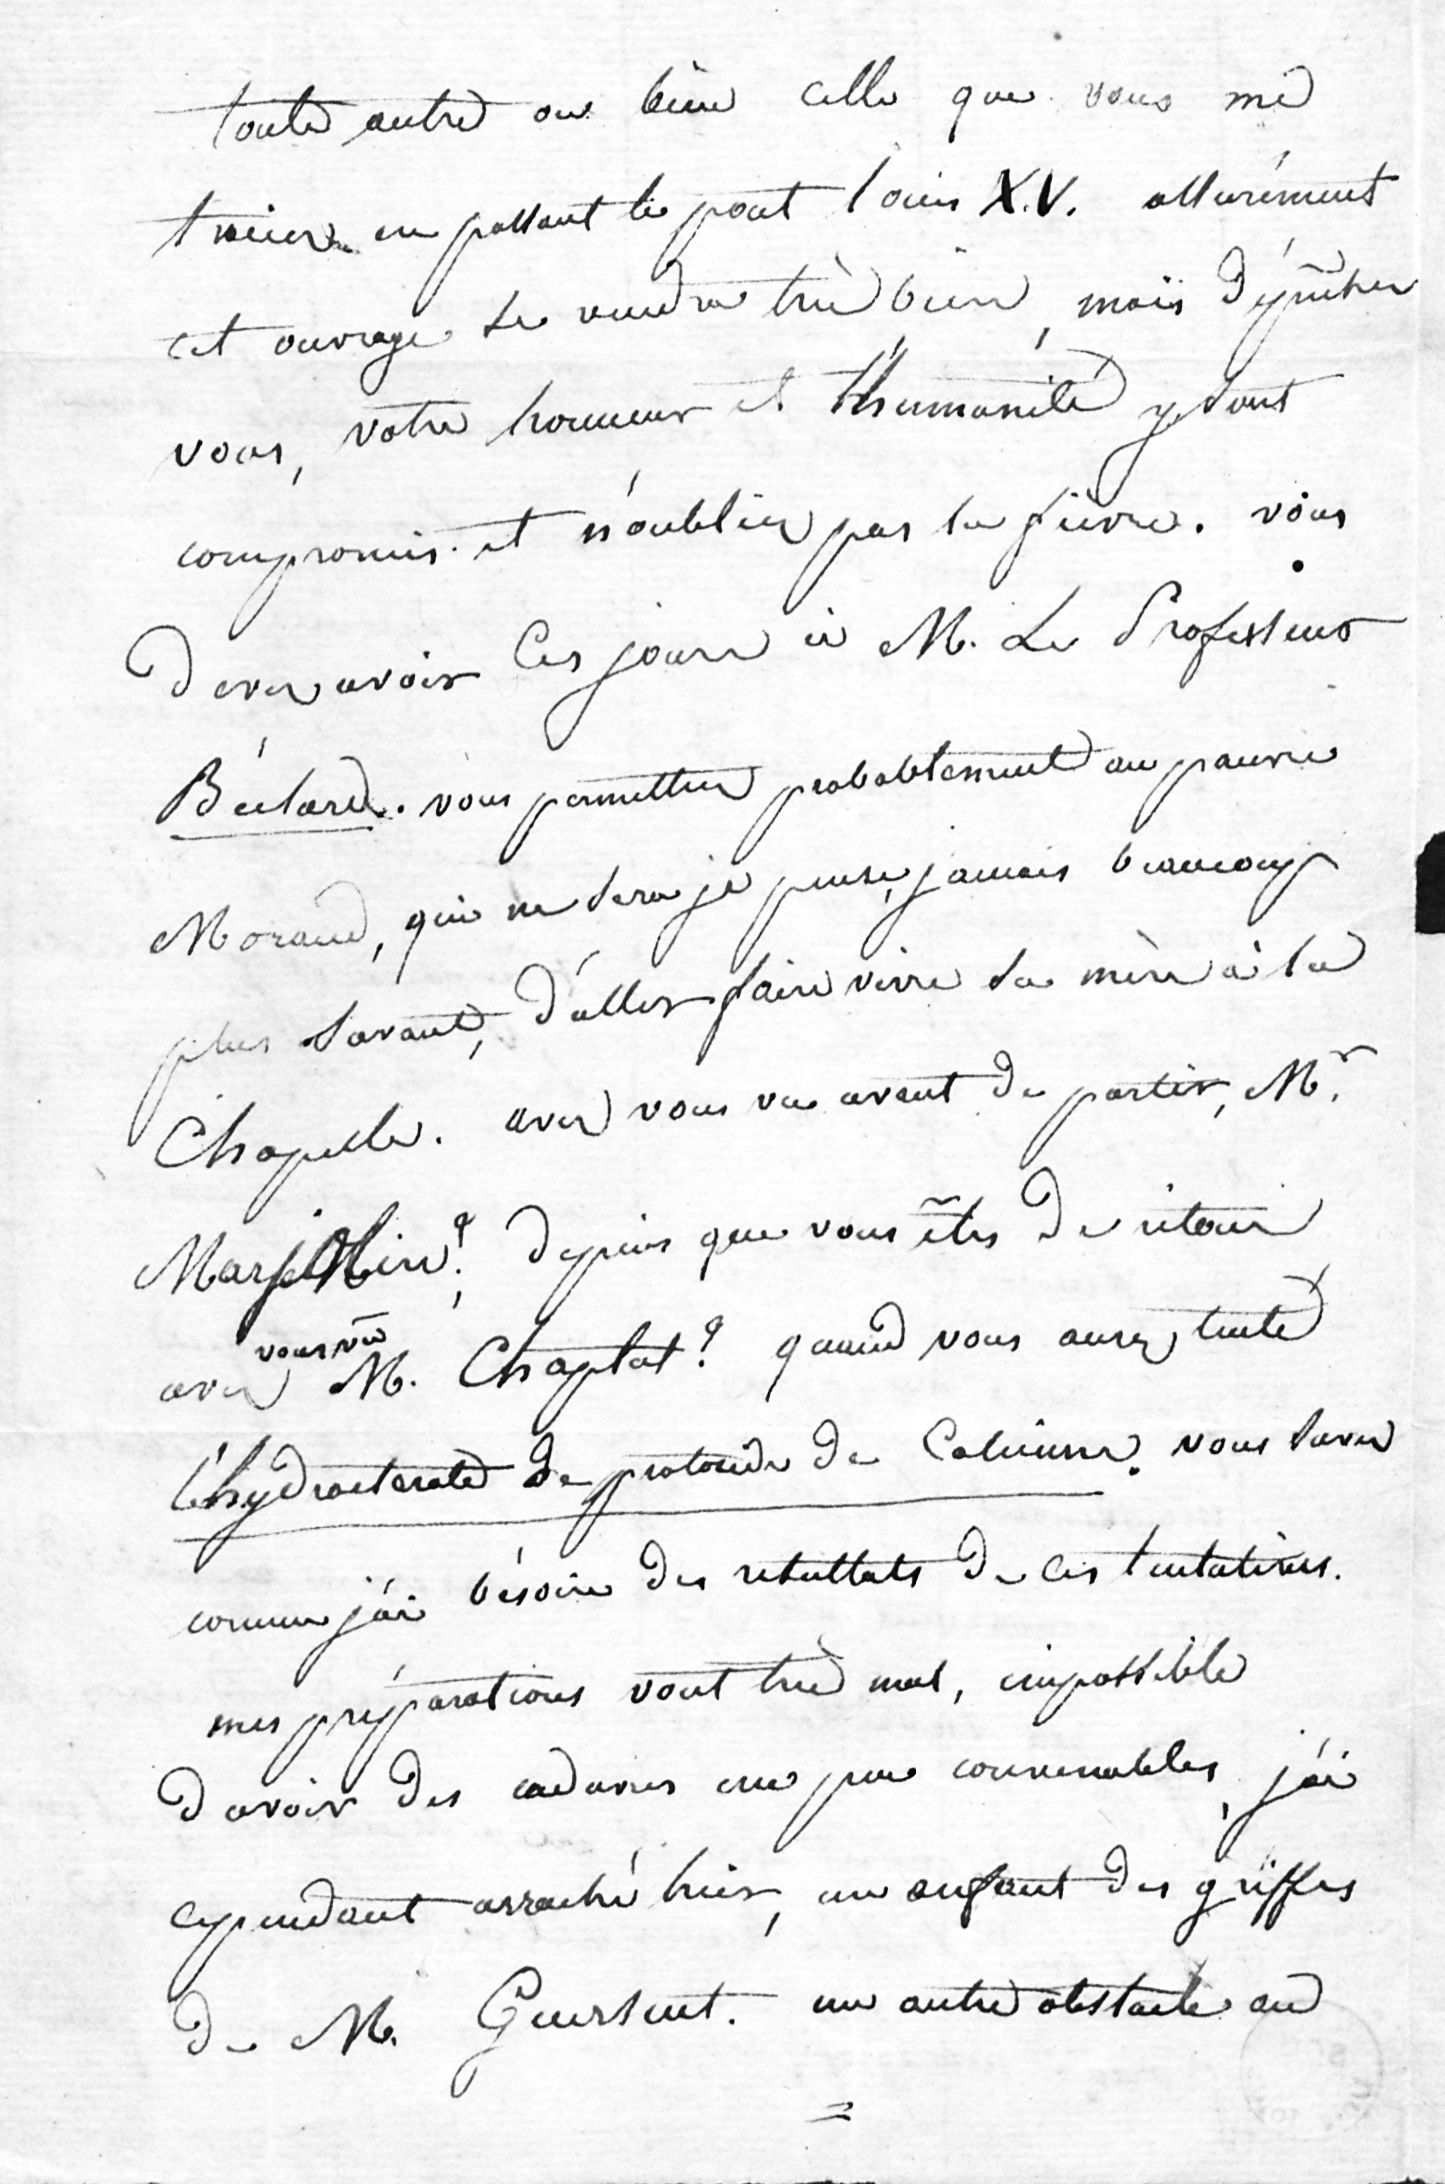 toute autre ou bien celle que vous me
en passant le pont louis X.V. assurément
cet ouvrage se vendra très bien, mais dépêchez
vous, votre honneur et l'humanité y sont
compromis. et n'oubliez pas la fievre. vous
devez avoir ces jours ci M. Le Professeur
Béclard. vous permettrez probablement au pauvre
Morand, qui ne sera je pense, jamais beaucoup
plus savant, d'aller faire vivre sa mère à la
Chapelle. avez vous vu avant de partir, Mr.
Marjollin? depuis que vous êtes de retour
avez vous vu M. Chaptal? quand vous aurez tenté
l'hydrochlorate de protoxide de Calcium. vous savez
comme j'ai bésoin des resultats de ces tentatives.
mes préparations vont très mal, impossible
d'avoir des cadavres un peu convenables, j'ai
cependant arraché hier, un enfant des griffes
de M. Guersent. un autre obstacle au
=